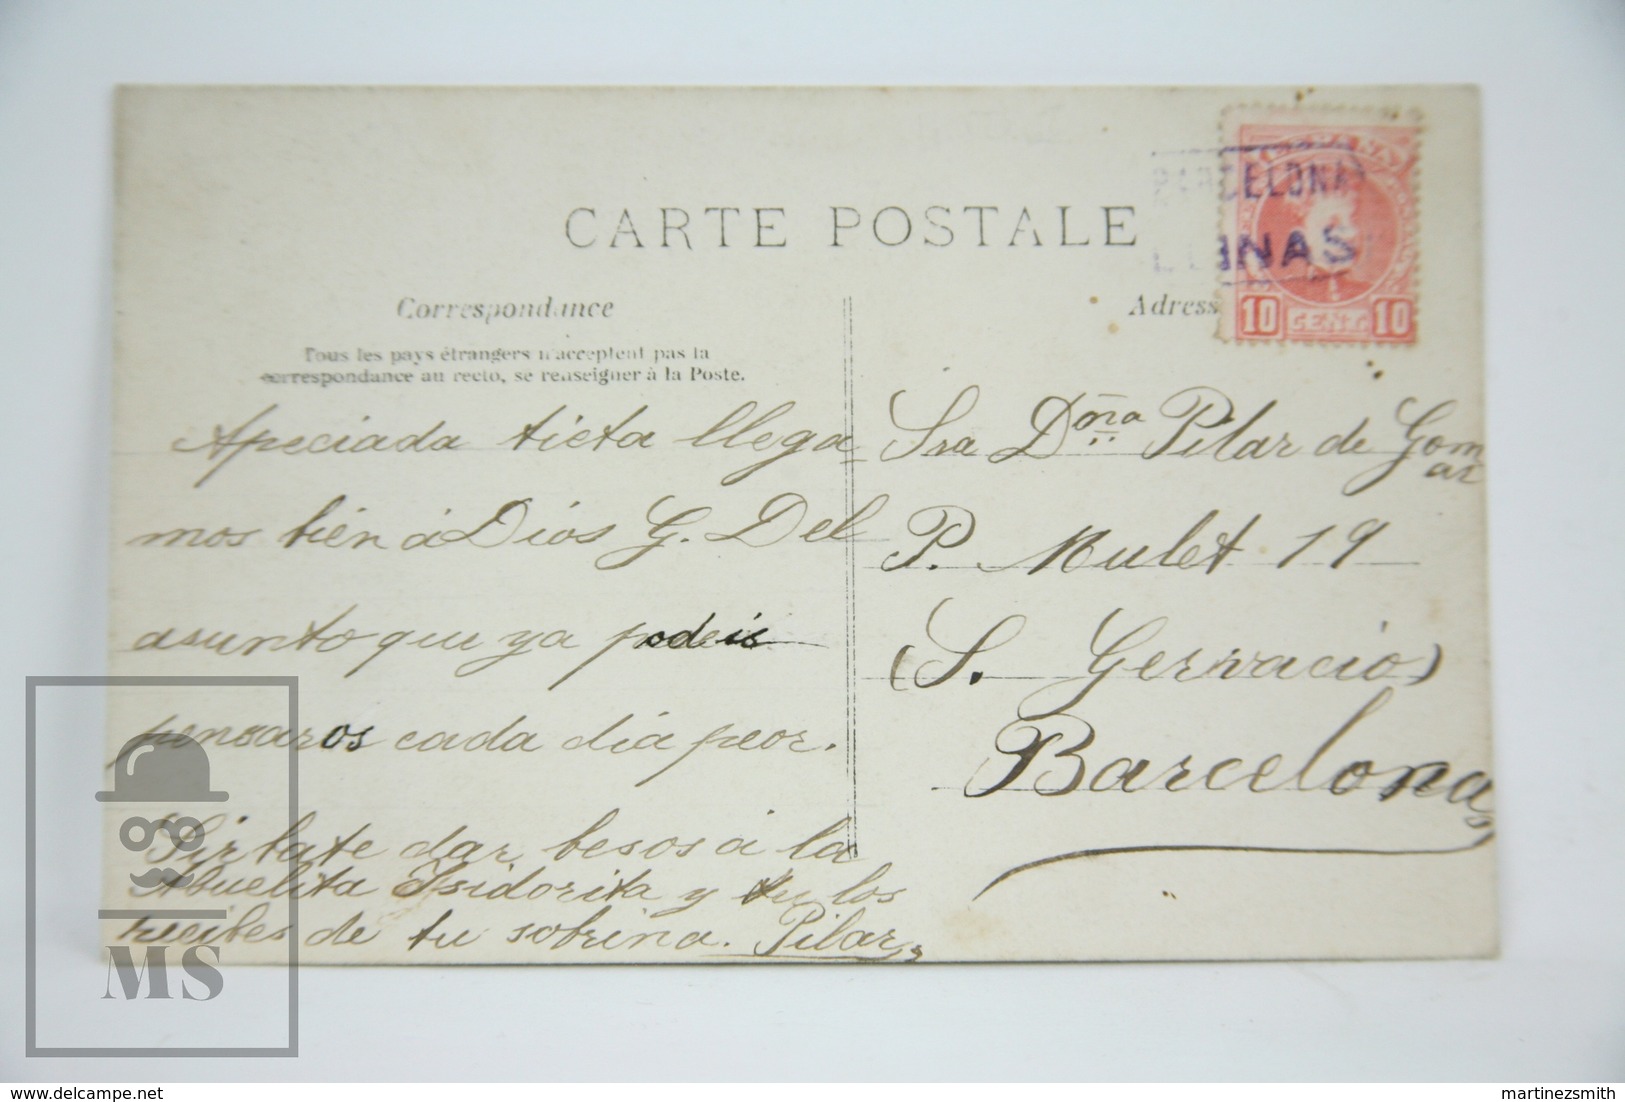 CARTE POSTALE
BARCELONA
LLINAS
ESPAÑA
10 CENT. 10
Correspondance
Adresse
Tous les pays étrangers n'acceptent pas la
correspondance au recto, se renseigner à la Poste.
Apeciada tieta llega
mos bien á Dios G. Del
asunto que ya podeis
pensaros cada dia peor.
Sirbate dar besos á la
Abuelita Isidorita y tu los
recibes de tu sobrina. Pilar,
Sra Dña Pilar de Gom
ar
P. Mulet 19
(S. Gervacio)
Barcelona
MS
delcampe.net
martinezsmith